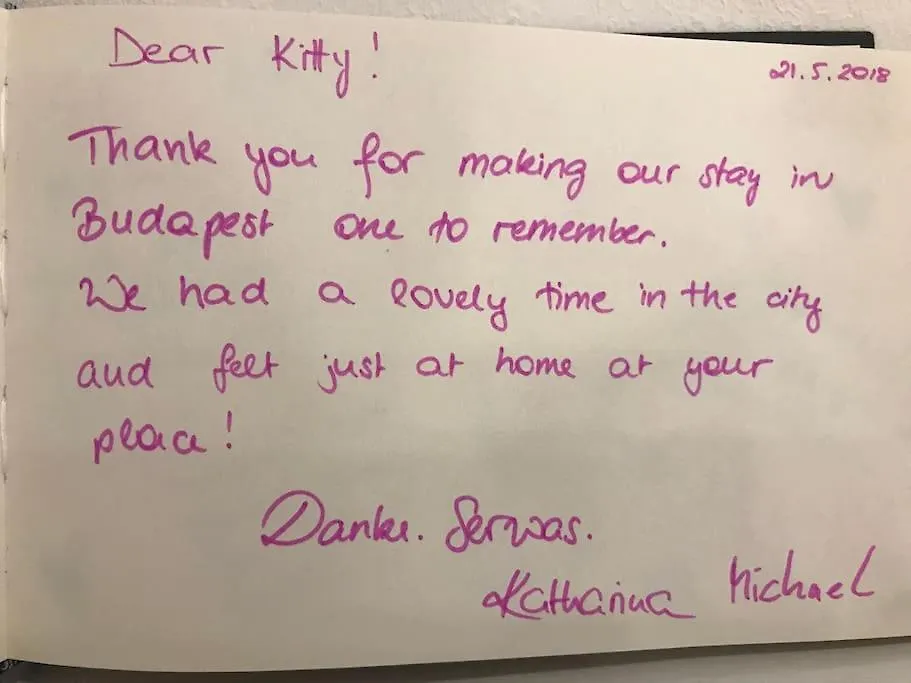 Dear Kitty!
21.5.2018
Thank you for making our stay in
Budapest one to remember.
We had a lovely time in the city
and felt just at home at your
place!
Danke. Serwas.
Katharina Michael